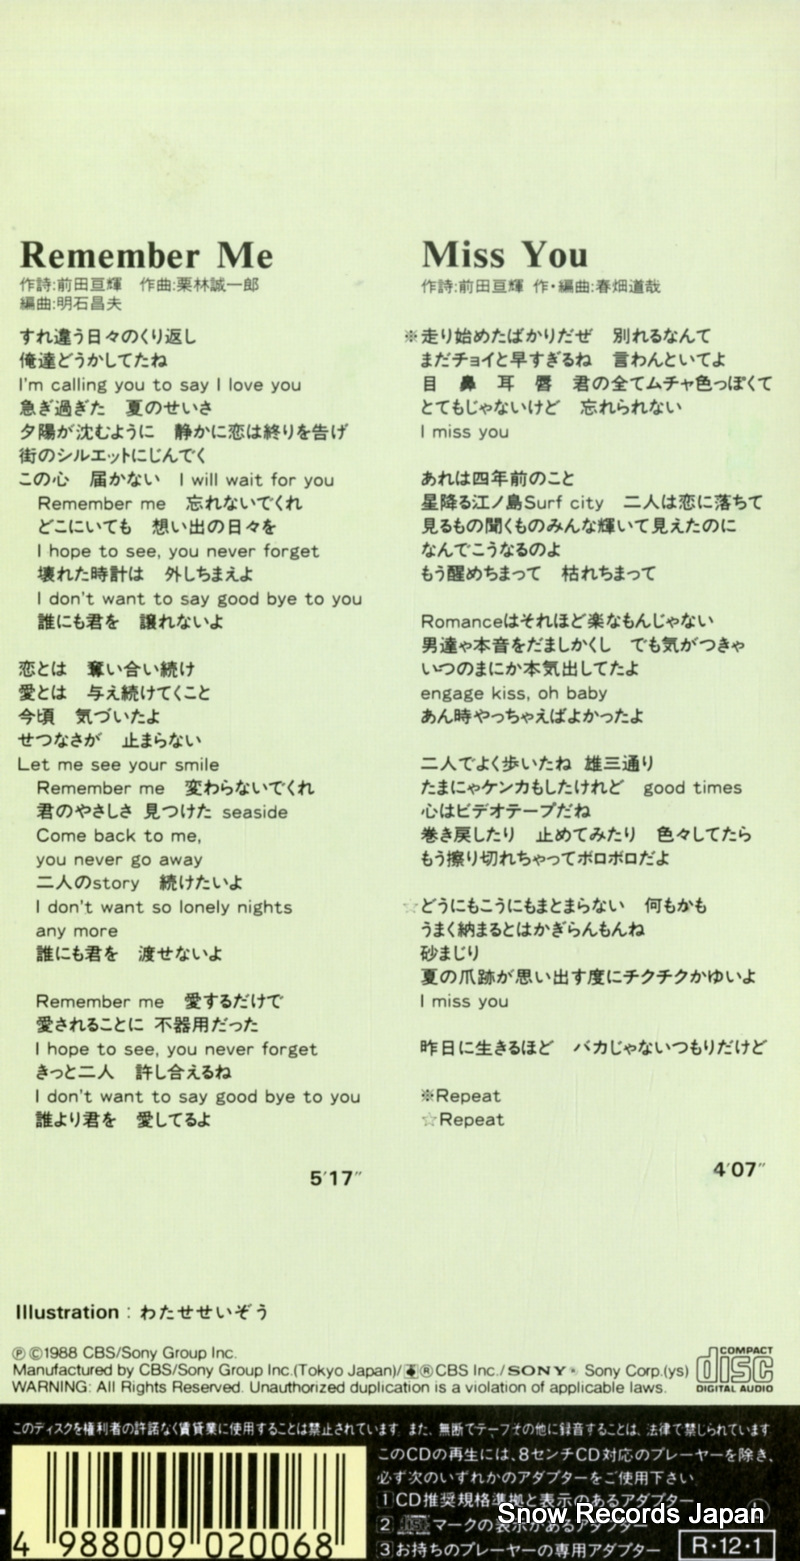 Remember Me
作詩:前田亘輝　作曲:栗林誠一郎
編曲:明石昌夫
すれ違う日々のくり返し
俺達どうかしてたね
I'm calling you to say I love you
急ぎ過ぎた　夏のせいさ
夕陽が沈むように　静かに恋は終りを告げ
街のシルエットにじんでく
この心　届かない　I will wait for you
Remember me　忘れないでくれ
どこにいても　想い出の日々を
I hope to see, you never forget
壊れた時計は　外しちまえよ
I don't want to say good bye to you
誰にも君を　譲れないよ
恋とは　奪い合い続け
愛とは　与え続けてくこと
今頃　気づいたよ
せつなさが　止まらない
Let me see your smile
Remember me　変わらないでくれ
君のやさしさ 見つけた seaside
Come back to me,
you never go away
二人のstory　続けたいよ
I don't want so lonely nights
any more
誰にも君を　渡せないよ
Remember me　愛するだけで
愛されることに 不器用だった
I hope to see, you never forget
きっと二人　許し合えるね
I don't want to say good bye to you
誰より君を　愛してるよ
5′17″
Miss You
作詩:前田亘輝 作・編曲:春畑道哉
※走り始めたばかりだぜ　別れるなんて
まだチョイと早すぎるね　言わんといてよ
目　鼻　耳　唇　君の全てムチャ色っぽくて
とてもじゃないけど　忘れられない
I miss you
あれは四年前のこと
星降る江ノ島Surf city　二人は恋に落ちて
見るもの聞くものみんな輝いて見えたのに
なんでこうなるのよ
もう醒めちまって　枯れちまって
Romanceはそれほど楽なもんじゃない
男達ゃ本音をだましかくし　でも気がつきゃ
いつのまにか本気出してたよ
engage kiss, oh baby
あん時やっちゃえばよかったよ
二人でよく歩いたね 雄三通り
たまにゃケンカもしたけれど　good times
心はビデオテープだね
巻き戻したり　止めてみたり　色々してたら
もう擦り切れちゃってボロボロだよ
☆どうにもこうにもまとまらない　何もかも
うまく納まるとはかぎらんもんね
砂まじり
夏の爪跡が思い出す度にチクチクかゆいよ
I miss you
昨日に生きるほど　バカじゃないつもりだけど
※Repeat
☆Repeat
4′07″
Illustration : わたせせいぞう
Ⓟ©1988 CBS/Sony Group Inc.
Manufactured by CBS/Sony Group Inc.(Tokyo Japan)/®CBS Inc./SONY® Sony Corp.(ys)
WARNING: All Rights Reserved. Unauthorized duplication is a violation of applicable laws.
COMPACT
disc
DIGITAL AUDIO
このディスクを権利者の許諾なく賃貸業に使用することは禁止されています。また、無断でテープその他に録音することは、法律で禁じられています
このCDの再生には、8センチCD対応のプレーヤーを除き、
必ず次のいずれかのアダプターをご使用下さい
1 CD推奨規格準拠と表示のあるアダプター
2 disc マークの表示があるアダプター
3 お持ちのプレーヤーの専用アダプター
4 988009 020068
R・12・1
Snow Records Japan